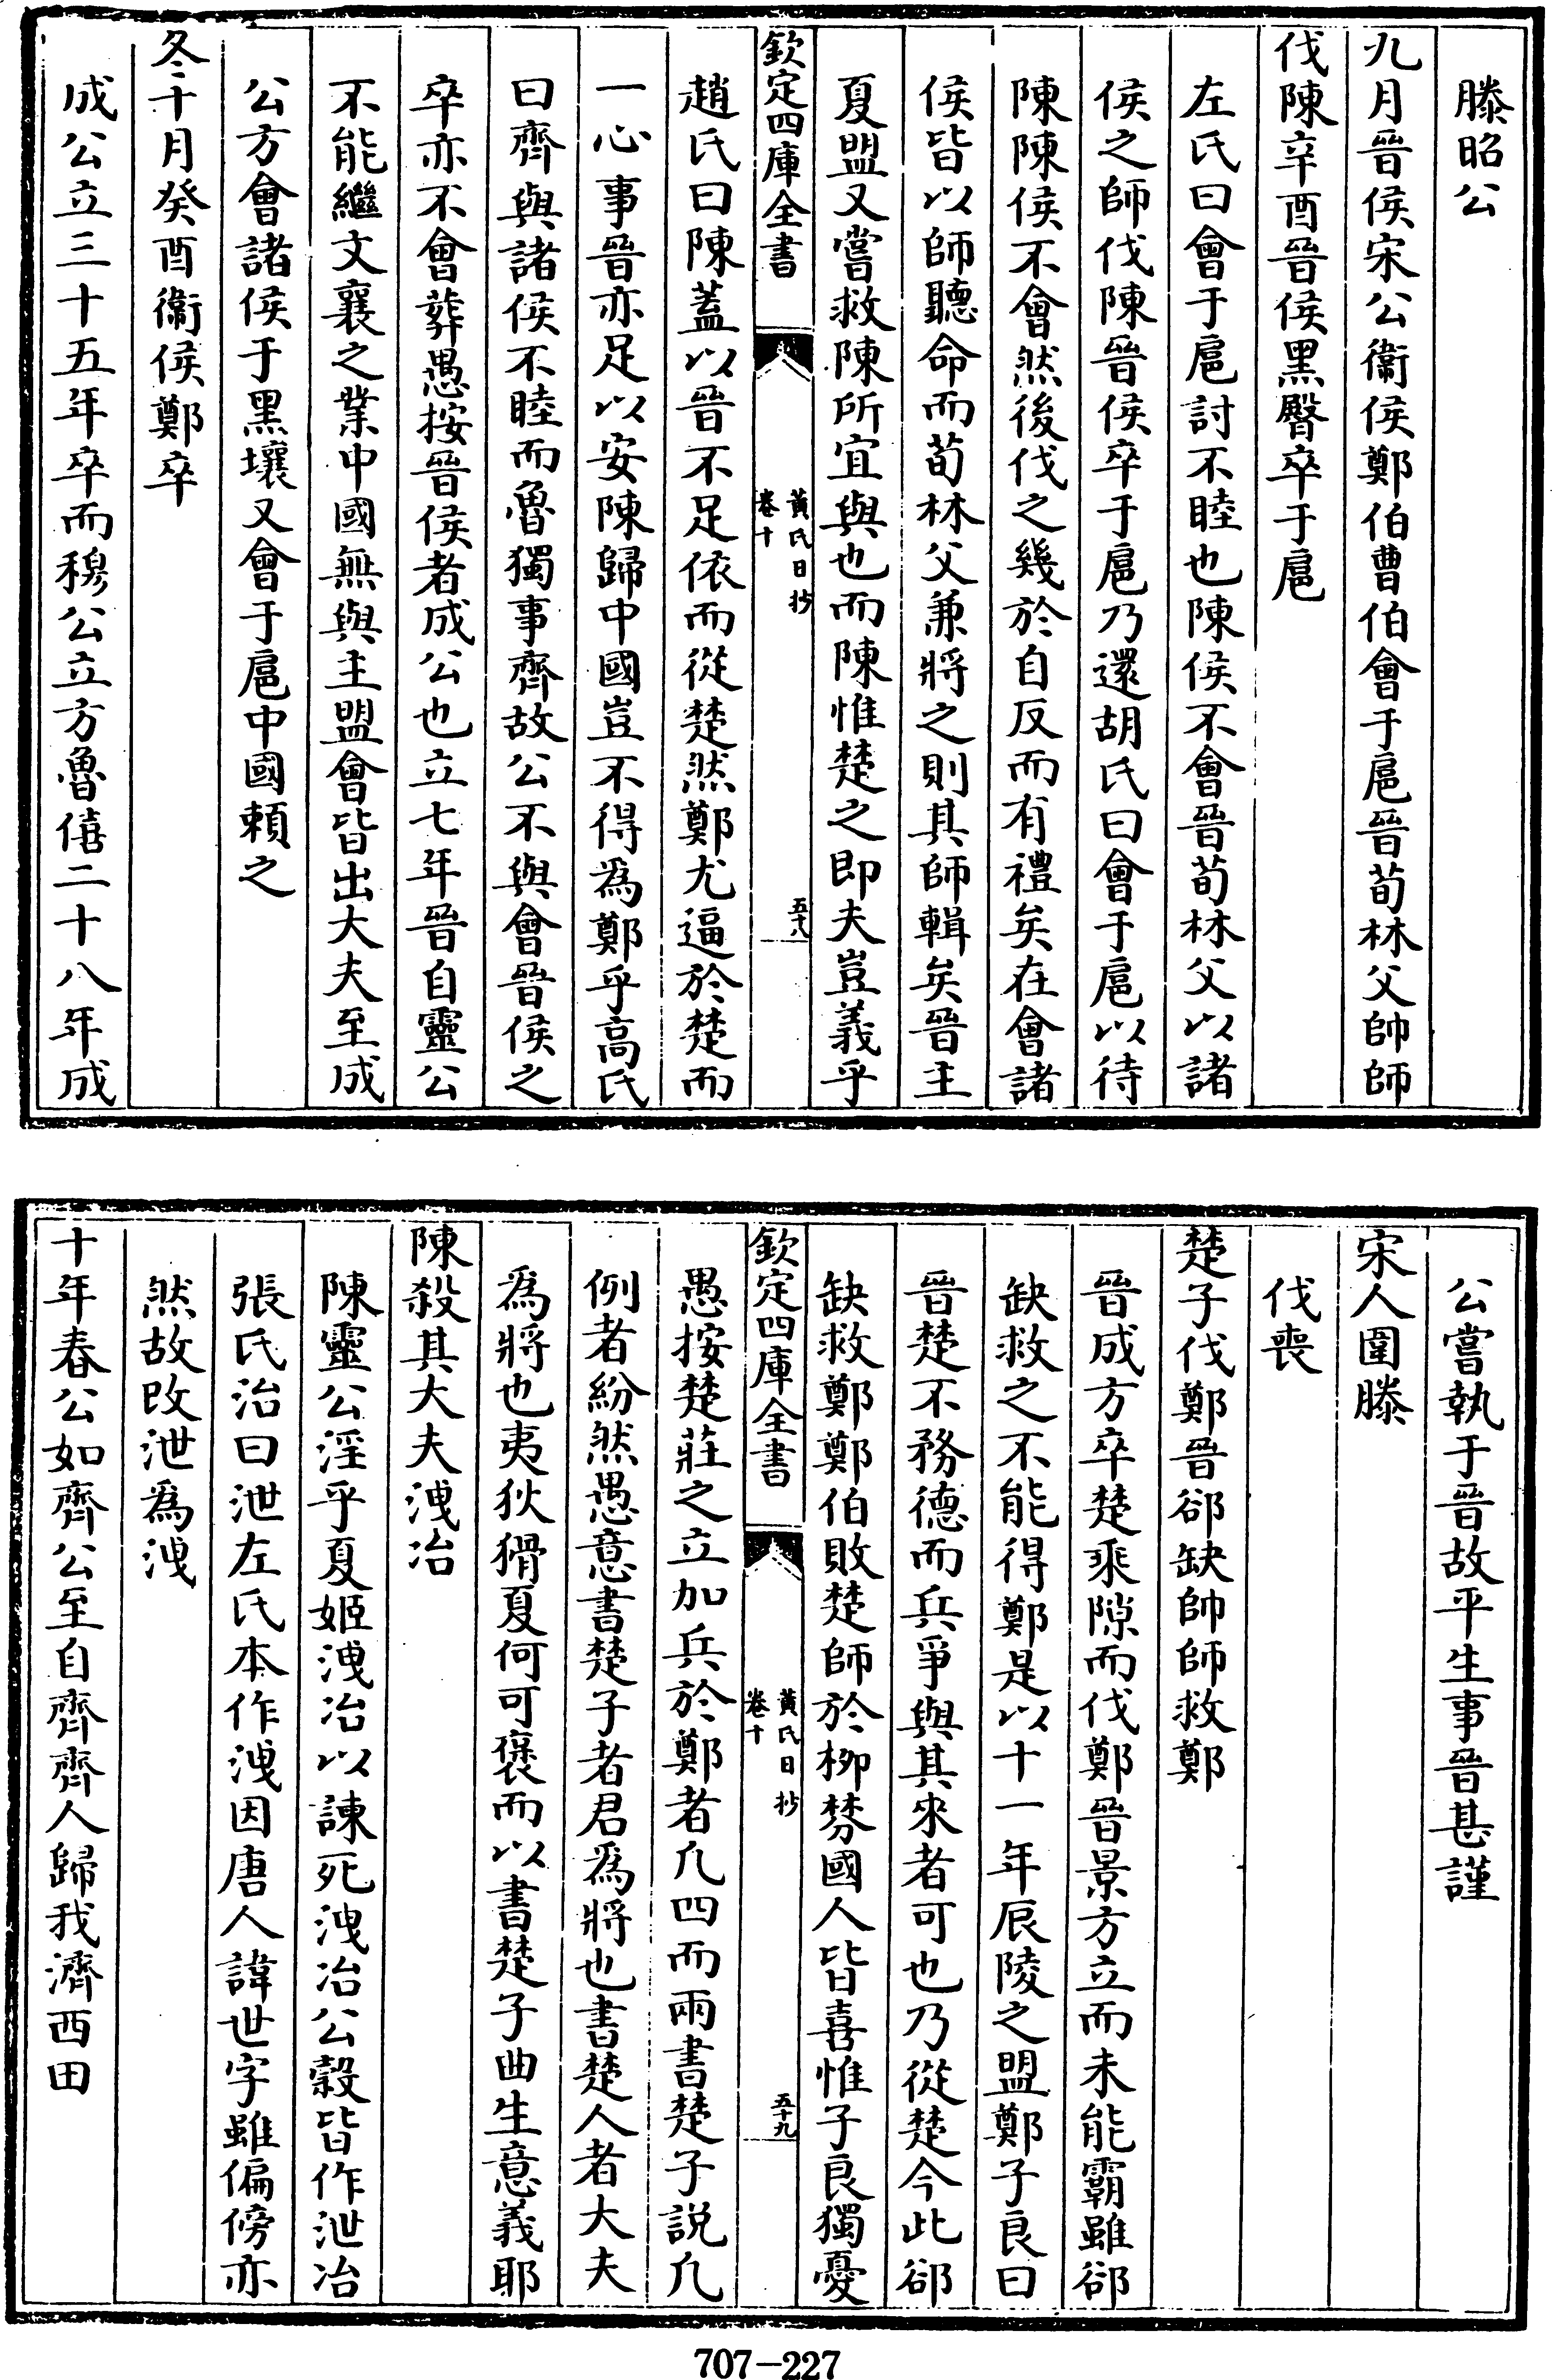 滕昭公
九月晉侯宋公衞侯鄭伯曹伯會于扈晉荀林父帥師
伐陳辛酉晉侯黑臀卒于扈
左氏曰會于扈討不睦也陳侯不會晉荀林父以諸
侯之師伐陳晉侯卒于扈乃還胡氏曰會于扈以待
陳陳侯不會然後伐之幾於自反而有禮矣在會諸
侯皆以師聽命而荀林父兼將之則其師輯矣晉主
夏盟又嘗救陳所宜與也而陳惟楚之即夫豈義乎
欽定四庫全書
黃氏日抄
卷十
五十八
趙氏曰陳蓋以晉不足依而從楚然鄭尤逼於楚而
一心事晉亦足以安陳歸中國豈不得爲鄭乎高氏
曰齊與諸侯不睦而魯獨事齊故公不與會晉侯之
卒亦不會葬愚按晉侯者成公也立七年晉自靈公
不能繼文襄之業中國無與主盟會皆出大夫至成
公方會諸侯于黑壤又會于扈中國賴之
冬十月癸酉衞侯鄭卒
成公立三十五年卒而穆公立方魯僖二十八年成
公嘗執于晉故平生事晉甚謹
宋人圍滕
伐喪
楚子伐鄭晉郤缺帥師救鄭
晉成方卒楚乘隙而伐鄭晉景方立而未能霸雖郤
缺救之不能得鄭是以十一年辰陵之盟鄭子良曰
晉楚不務德而兵爭與其來者可也乃從楚今此郤
缺救鄭鄭伯敗楚師於柳棼國人皆喜惟子良獨憂
欽定四庫全書
黃氏日抄
卷十
五十九
愚按楚莊之立加兵於鄭者凡四而兩書楚子說凡
例者紛然愚意書楚子者君爲將也書楚人者大夫
爲將也夷狄猾夏何可褒而以書楚子曲生意義耶
陳殺其大夫洩冶
陳靈公淫乎夏姬洩冶以諫死洩冶公穀皆作泄冶
張氏洽曰泄左氏本作洩因唐人諱世字雖偏傍亦
然故改泄爲洩
十年春公如齊公至自齊齊人歸我濟西田
707-227